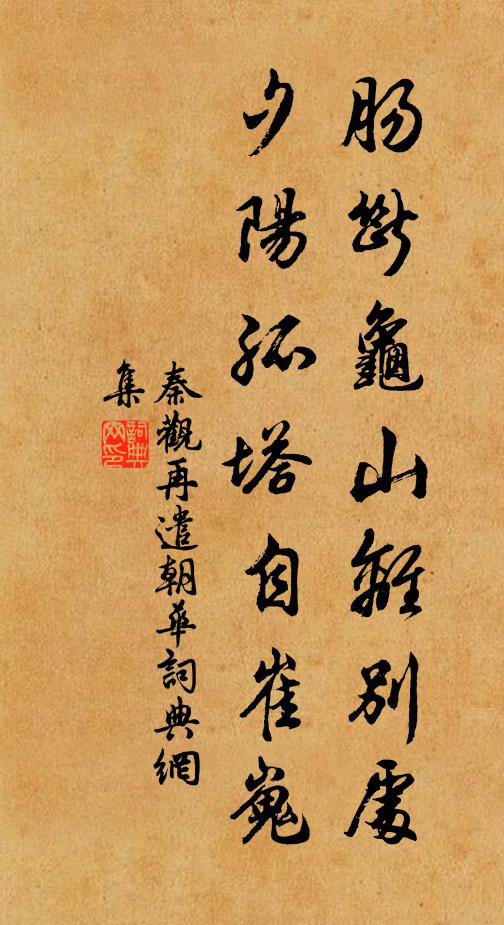 肠斷龜山離別處
夕陽孤塔自崔嵬
秦觀再遣朝華詞典網
集
詞典
网印